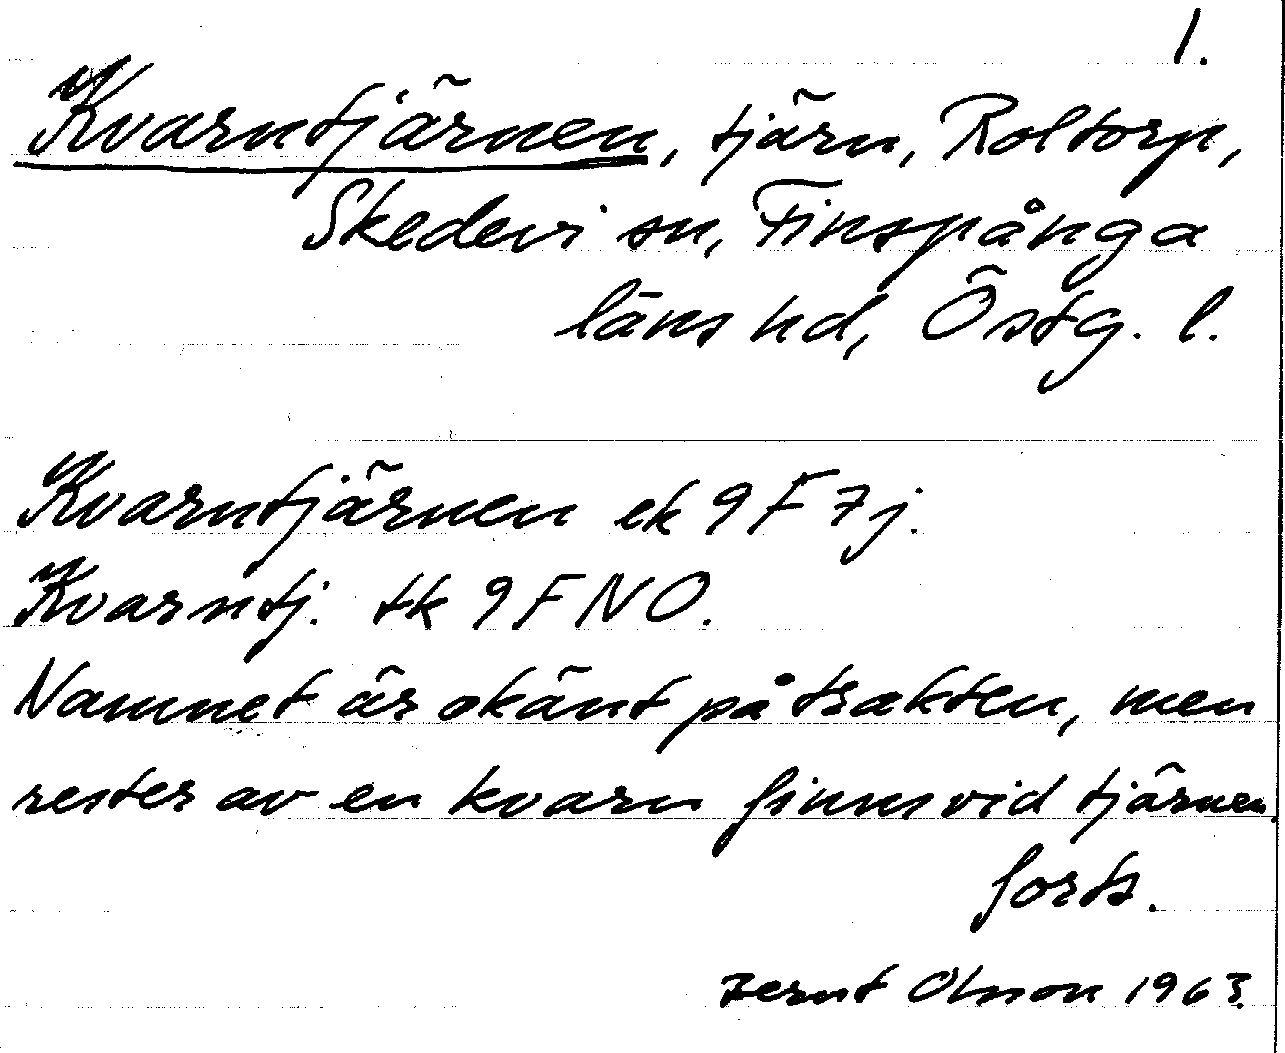 1.
Kvarntjärnen, tjärn, Roltorp,
Skedevi sn, Finspånga
läns hd, Östg. l.
Kvarntjärnen ek 9F7j.
Kvarntj. tk 9FNO.
Namnet är okänt på trakten, men
rester av en kvarn finns vid tjärnen.
forts.
Bernt Olsson 1963.